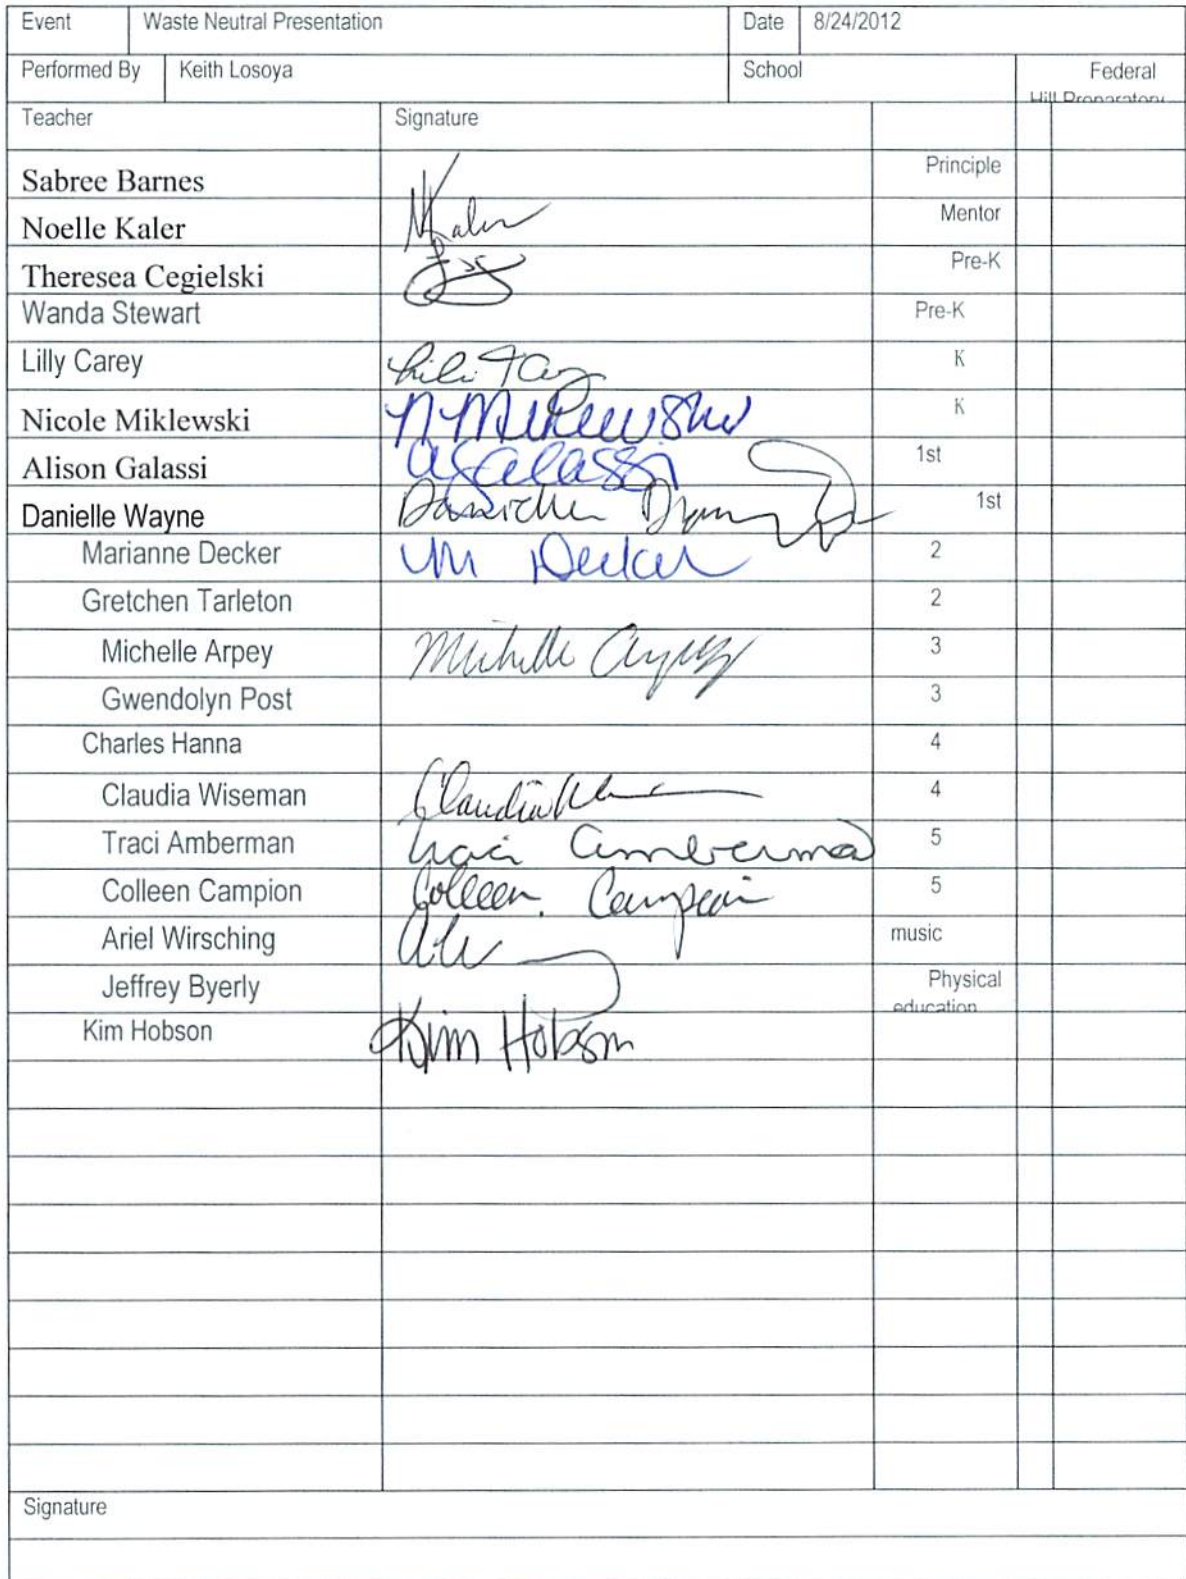 Event Waste Neutral Presentation Date 8/24/2012
Performed By Keith Losoya School Federal
Hill Preparatory
Teacher Signature
Sabree Barnes Principle
Noelle Kaler NKaler Mentor
Theresea Cegielski Pre-K
Wanda Stewart Pre-K
Lilly Carey K
Nicole Miklewski N Miklewski K
Alison Galassi a Galassi 1st
Danielle Wayne Danielle 1st
Marianne Decker M Decker 2
Gretchen Tarleton 2
Michelle Arpey Michelle Arpey 3
Gwendolyn Post 3
Charles Hanna 4
Claudia Wiseman Claudia 4
Traci Amberman Traci Amberman 5
Colleen Campion Colleen Campion 5
Ariel Wirsching music
Jeffrey Byerly Physical
education
Kim Hobson Kim Hobson
Signature